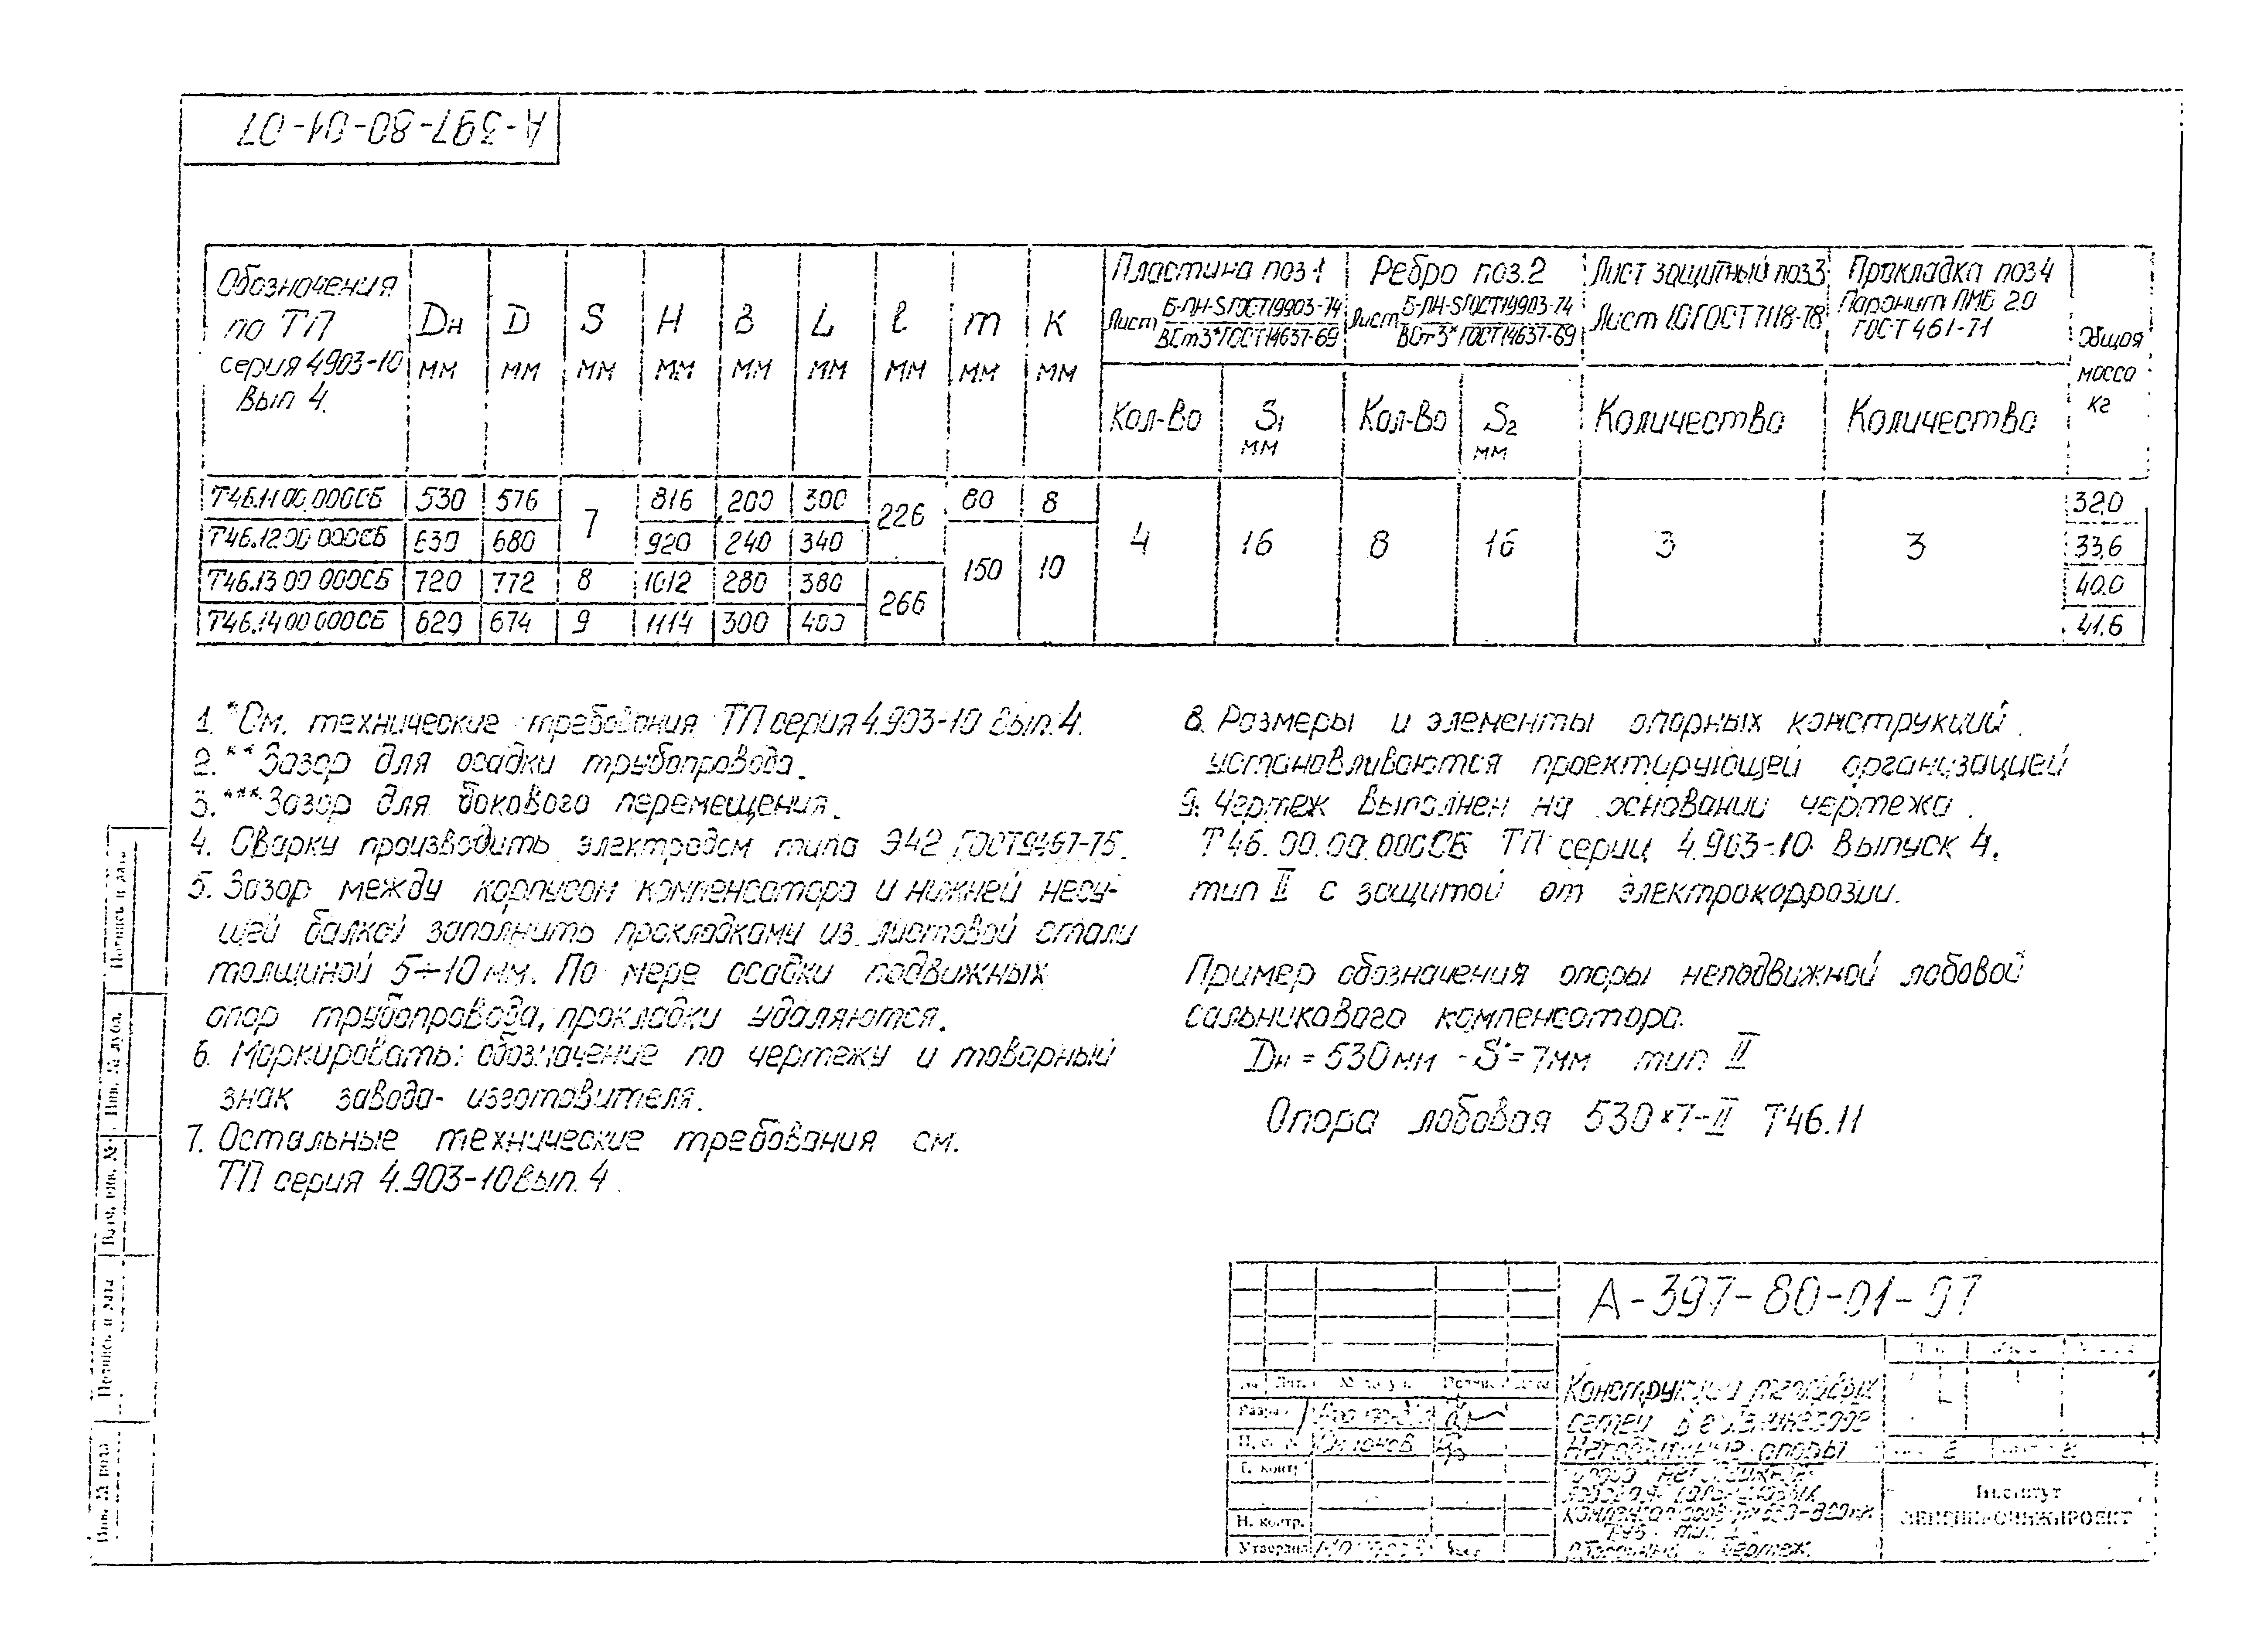 А-397-80-01-07
Обозначения по ТП серия 4903-10 Вып 4. Dн мм D мм S мм H мм B мм L мм l мм m мм K мм
Пластина поз 1 Ребро поз.2 Лист защитный поз3 Прокладка поз 4 Общая масса кг
Лист Б-ПН-S ГОСТ19903-74 Лист Б-ПН-S ГОСТ19903-74 Лист 10 ГОСТ 7118-78 Паронит ПМБ 2.0
ВСт3* ГОСТ14637-69 ВСт3* ГОСТ14637-69 ГОСТ 461-71
Кол-во S1 мм Кол-во S2 мм Количество Количество
Т46.11 00.000СБ 530 576 7 816 200 300 226 80 8 4 16 8 16 3 3 32,0
Т46.12 00 000СБ 630 680 920 240 340 150 10 33,6
Т46.13 00 000СБ 720 772 8 1012 280 380 266 40.0
Т46.14 00 000СБ 820 674 9 1114 300 400 41.6
1. *См. технические требования ТП серия 4.903-10 вып. 4.
2. **Зазор для осадки трубопровода.
3. ***Зазор для бокового перемещения.
4. Сварку производить электродом типа Э42 ГОСТ9467-75.
5. Зазор между корпусом компенсатора и нижней несу-
щей балкой заполнить прокладками из листовой стали
толщиной 5÷10 мм. По мере осадки подвижных
опор трубопровода, прокладки удаляются.
6. Маркировать: обозначение по чертежу и товарный
знак завода-изготовителя.
7. Остальные технические требования см.
ТП серия 4.903-10 вып. 4.
8. Размеры и элементы опорных конструкций
устанавливаются проектирующей организацией
9. Чертеж выполнен на основании чертежа
Т46.00.00.000СБ ТП серии 4.903-10 Выпуск 4.
тип II с защитой от электрокоррозии.
Пример обозначения опоры неподвижной лобовой
сальникового компенсатора.
Dн = 530 мм - S = 7 мм тип II
Опора лобовая 530×7-II Т46.11
Подпись и дата
Инв. № дубл.
Взам. инв. №
Подпись и дата
Инв. № подл
А-397-80-01-07
Конструкции тепловых
сетей в г Ленинграде
Неподвижные опоры
Разраб
Т. контр
Н. контр.
Утвердил
Институт
ЛЕНГИПРОИНЖПРОЕКТ